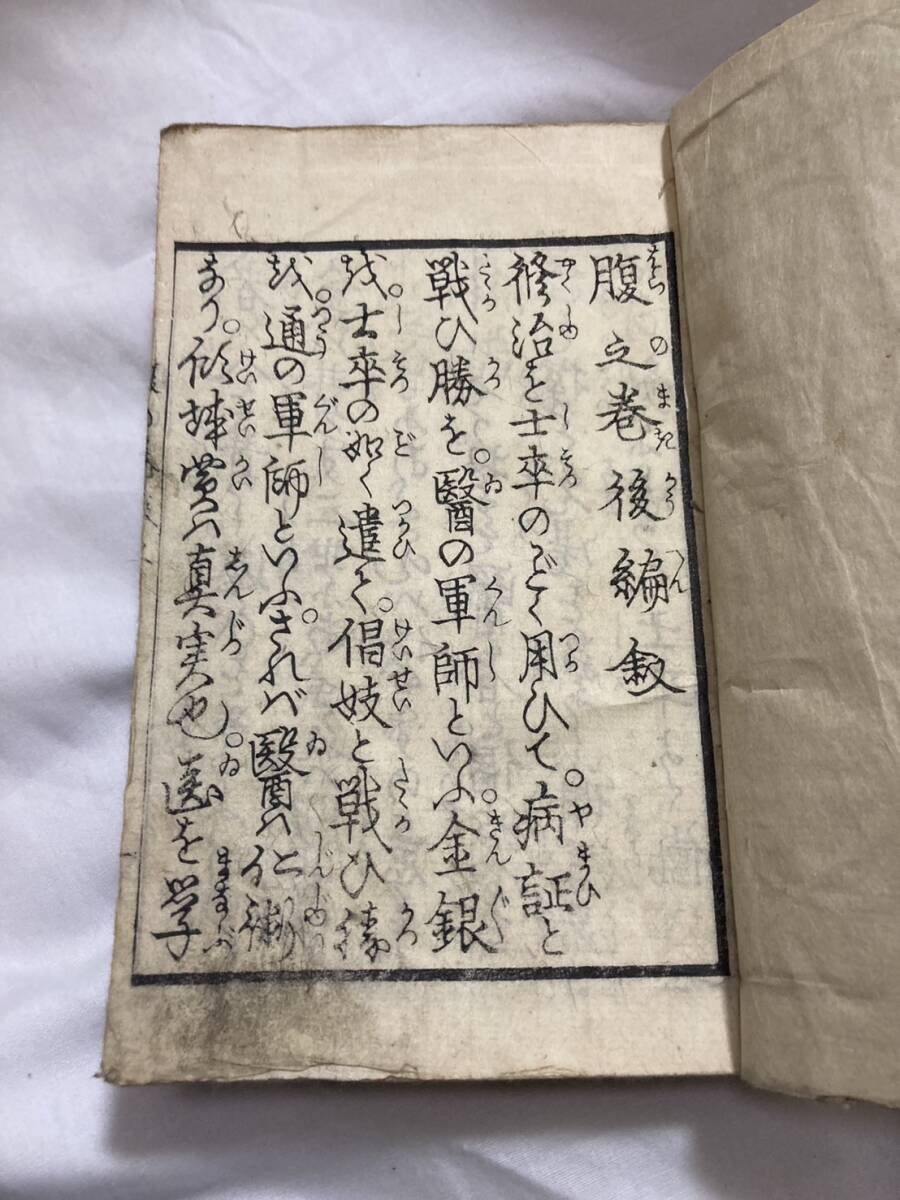 腹之巻後編叙
修治を士卒のごく用ひて。病証と
戦ひ勝を。醫の軍師といふ。金銀
を。士卒の如く遣て。倡妓と戦ひ捷
を。通の軍師といふ。されバ醫ハ仁術
なり。傾城買ハ真実也。醫を学